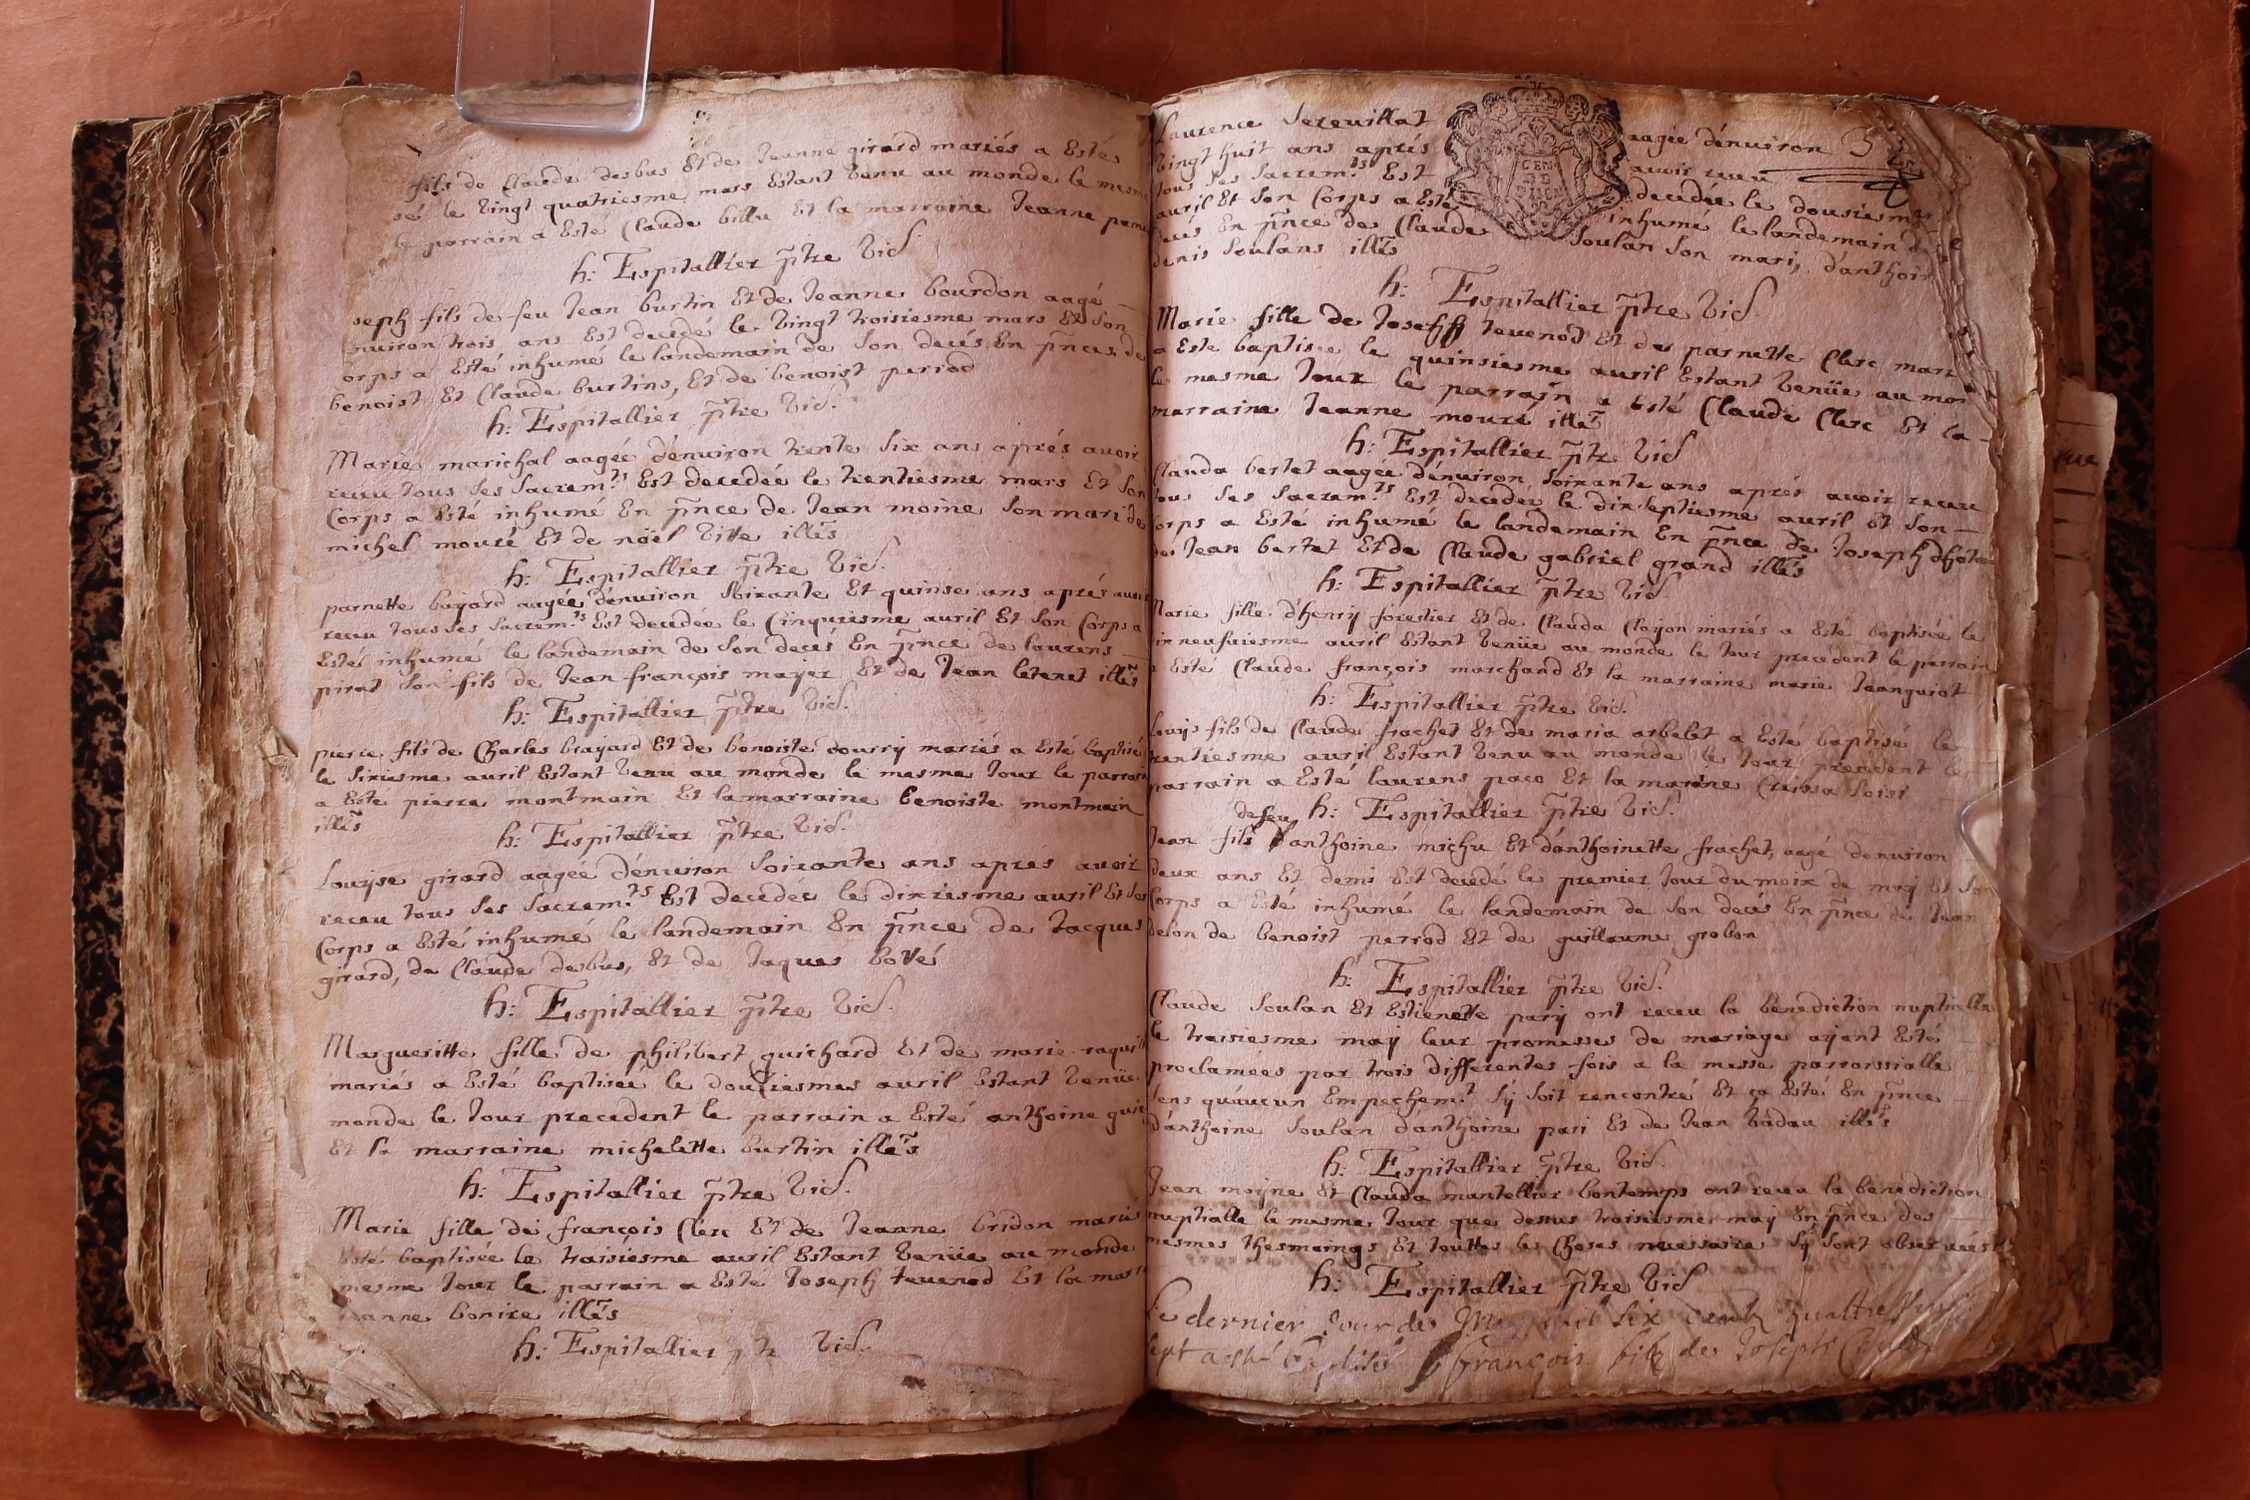 fils de Claude desbus Et de Jeanne girard mariés a Esté
sé le vingt quatriesme mars Estant venu au monde le mesme
le parrain a Esté Claude billu Et la marraine Jeanne
h: Espitallier p̃tre vic̃
seph fils de feu Jean burtin Et de Jeanne bourdon aagé
nuiron trois ans Est decedé le vingt troisiesme mars Et Son
orps a Esté inhumé le landemain de Son decés En p̃nce de
benoist Et Claude burtins, Et de benoist perrod
h: Espitallier p̃tre vic̃
Marie marichal aagée d'enuiron trente Six ans aprés avoir
receu tous Ses Sacrem.ts Est decedée le trentiesme mars Et Son
Corps a Esté inhumé En p̃nce de Jean moine Son mari de
michel mouré Et de noël vitte illẽs
h: Espitallier p̃tre vic̃
parnette bajard aagée d'enuiron Soixante Et quinse ans aprés avoir
receu tous Ses Sacrem.ts Est decedée le Cinquiesme auril Et Son Corps a
Esté inhumé le landemain de Son decés En p̃nce de laurens
pirat Son fils de Jean françois majer Et de Jean letenet illẽs
h: Espitallier p̃tre vic̃
pierre fils de Charles brajard Et de benoiste dourrÿ mariés a Esté baptisé
le Sixiesme auril Estant venu au monde le mesme Jour le parrain
a Esté pierre montmain Et la marraine benoiste montmain
illẽs
h: Espitallier p̃tre vic̃
Louÿse girard aagée d'enuiron Soixante ans aprés avoir
receu tous Ses Sacrem.ts Est decedée le dixiesme auril Et Son
Corps a Esté inhumé le landemain En p̃nce de Jacques
girard, de Claude desbus, Et de Jaques bollé
h: Espitallier p̃tre vic̃
Margueritte fille de philibert guichard Et de marie
mariés a Esté baptisée le douziesme auril Estant venüe
monde le Jour precedent le parrain a Esté anthoine
Et la marraine michelette burtin illẽs
h: Espitallier p̃tre vic̃
Marie fille de françois Clerc Et de Jeanne bridon mariés
Esté baptisée le traisiesme auril Estant venüe au monde
mesme Jour le parrain a Esté Joseph teuenod Et la
anne bonire illẽs
h: Espitallier p̃tre vic̃
Laurence Sereuillat aagée d'enuiron
vingt huit ans aprés avoir receu
tous Ses Sacrem.ts Est decedée le dousiesme
auril Et Son Corps a Esté inhumé le landemain de
deces En p̃nce de Claude Soulan Son mari, d'anthoine
denis Soulans illẽs
h: Espitallier p̃tre vic̃
Marie fille de Joseph teuenod Et de parnette Clerc
a Esté baptisée le quinsiesme auril Estant venüe au
le mesme Jour le parrain a Esté Claude Clerc Et la
marraine Jeanne mouré illẽs
h: Espitallier p̃tre vic̃
Clauda bertet aagée d'enuiron Soixante ans aprés avoir receu
tous Ses Sacrem.ts Est decedée le dixseptiesme auril Et Son
Corps a Esté inhumé le landemain En p̃nce de Joseph
de Jean bertet Et de Claude gabriel grand illẽs
h: Espitallier p̃tre vic̃
Marie fille d'henrÿ forestier Et de Clauda Clajon mariés a Esté baptisée le
auril Estant venüe au monde le Jour precedent le parrain
a Esté Claude françois marchand Et la marraine marie Jeanguiot
h: Espitallier p̃tre vic̃
Louÿs fils de Claude frachet Et de maria arbelet a Esté baptisé le
trentiesme auril Estant venu au monde le Jour precedent le
parrain a Esté laurens pace Et la marrine
h: Espitallier p̃tre vic̃
de feu
Jean fils d'anthoine michu Et d'anthoinette frachet, aagé denuiron
deux ans Et demi Est decedé le premier Jour du moix de maÿ Et Son
Corps a Esté inhumé le landemain de Son decés En p̃nce de Jean
delon de benoist perrod Et de guillaume grobon
h: Espitallier p̃tre vic̃
Claude Soulan Et Estienette parÿ ont receu la benediction nuptialle
le traisiesme maÿ leur promesses de mariage ajent Esté
proclamées par trois differentes fois a la messe parroissialle
Sens qu'aucun Empechem.t S'ÿ Soit rencontré Et ça Esté En p̃nce
d'anthoine Soulan d'anthoine pari Et de Jean badau illẽs
h: Espitallier p̃tre vic̃
Jean moÿne Et Clauda mantellier bontemps ont receu la benediction
nuptialle le mesme Jour que dessus traisiesme maÿ En p̃nce des
mesmes thesmoings Et touttes les Choses necessaire S'ÿ Sont obseruées
h: Espitallier p̃tre vic̃
Le dernier Jour de Maÿ mil Six cents quattre
Sept a esté baptisé françois fils de Joseph